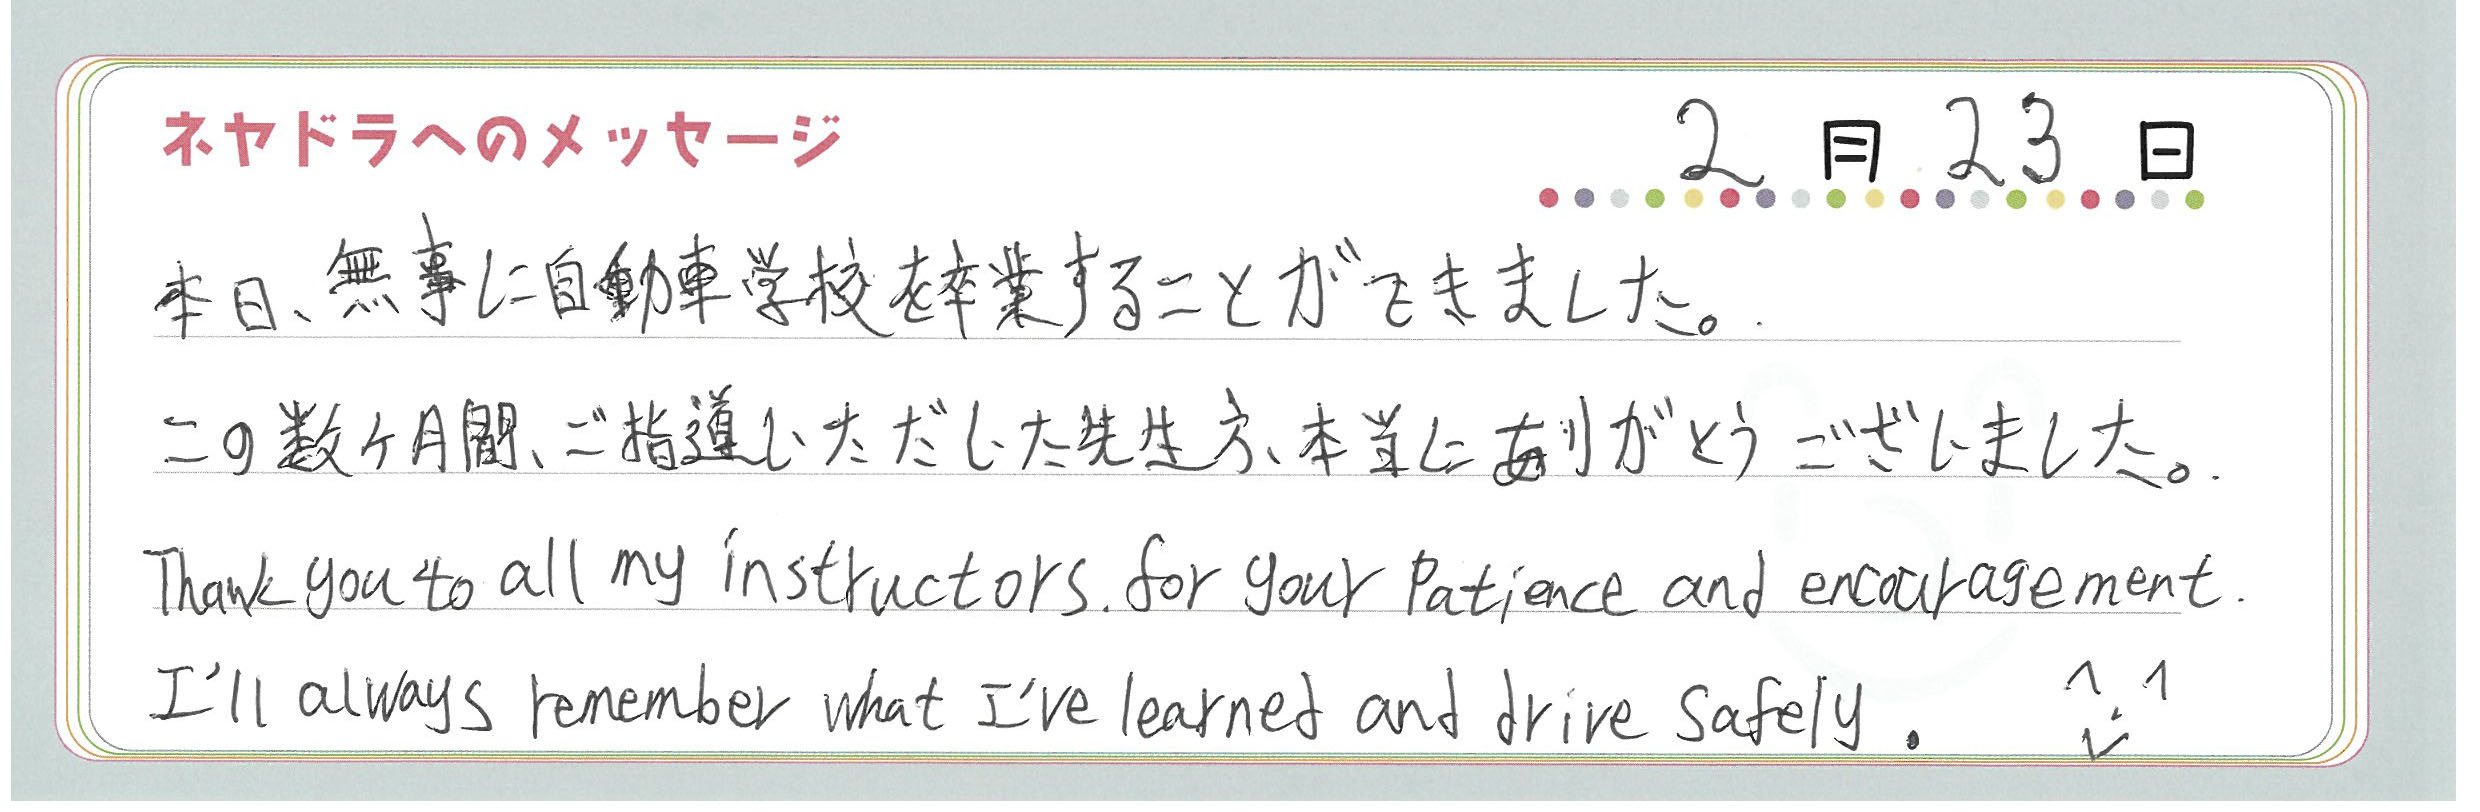 ネヤドラへのメッセージ
2月23日
本日、無事に自動車学校を卒業することができました。
この数ヶ月間、ご指導いただいた先生方、本当にありがとうございました。
Thank you to all my instructors. for your Patience and encouragement.
I'll always remember what I've learned and drive safely.